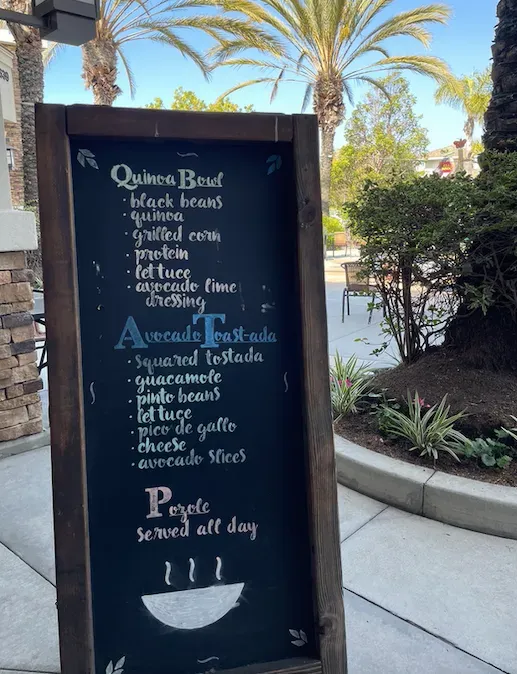 Quinoa Bowl
· black beans
· quinoa
· grilled corn
· protein
· lettuce
· avocado lime
dressing
Avocado Toast-ada
· squared tostada
· guacamole
· pinto beans
· lettuce
· pico de gallo
· cheese
· avocado slices
Pozole
served all day